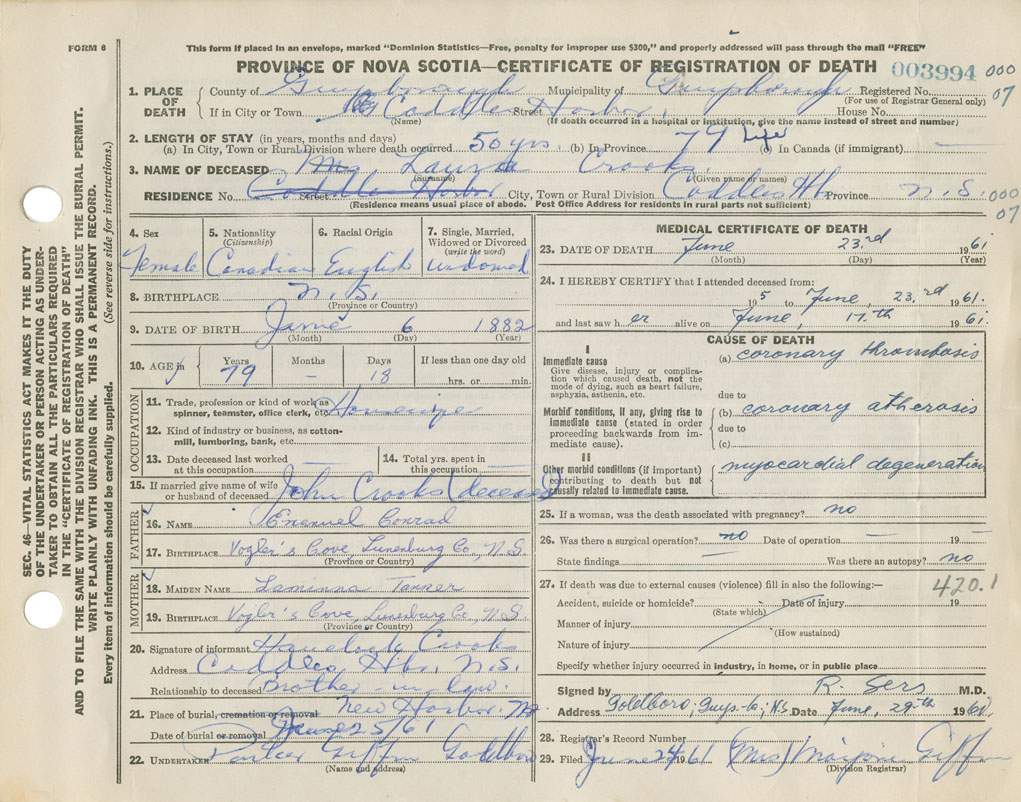 FORM 6
This form if placed in an envelope, marked "Dominion Statistics—Free, penalty for improper use $300," and properly addressed will pass through the mail "FREE"
PROVINCE OF NOVA SCOTIA—CERTIFICATE OF REGISTRATION OF DEATH 003994 000
07
1. PLACE OF DEATH County of Guysborough Municipality of Guysborough Registered No.
(For use of Registrar General only)
If in City or Town Coddles Harbor Street House No.
(Name) (If death occurred in a hospital or institution, give the name instead of street and number)
2. LENGTH OF STAY (in years, months and days)
(a) In City, Town or Rural Division where death occurred 50 yrs (b) In Province 79 Life (c) In Canada (if immigrant) —
3. NAME OF DECEASED Laura Crooks
(Surname) (Given name or names)
RESIDENCE No. Street Coddle Harbor City, Town or Rural Division Coddles Hb. Province N.S.
000
07
(Residence means usual place of abode. Post Office Address for residents in rural parts not sufficient)
4. Sex Female
5. Nationality (Citizenship) Canadian
6. Racial Origin English
7. Single, Married, Widowed or Divorced (write the word) widowed
8. BIRTHPLACE N.S.
(Province or Country)
9. DATE OF BIRTH June 6 1882
(Month) (Day) (Year)
10. AGE Years 79 Months – Days 18 If less than one day old hrs. or min.
OCCUPATION
11. Trade, profession or kind of work as spinner, teamster, office clerk, etc. Housewife
12. Kind of industry or business, as cotton-mill, lumbering, bank, etc.
13. Date deceased last worked at this occupation — 14. Total yrs. spent in this occupation —
15. If married give name of wife or husband of deceased John Crooks (deceased)
FATHER
16. NAME Emanuel Conrad
17. BIRTHPLACE Vogler's Cove, Lunenburg Co., N.S.
(Province or Country)
MOTHER
18. MAIDEN NAME
19. BIRTHPLACE Vogler's Cove, Lunenburg Co., N.S.
(Province or Country)
20. Signature of informant Crooks
Address Coddles Hbr. N.S.
Relationship to deceased Brother-in-law.
21. Place of burial, cremation or removal New Harbor
Date of burial or removal June 25/61
22. UNDERTAKER Parker Giffin Goldboro
(Name and address)
MEDICAL CERTIFICATE OF DEATH
23. DATE OF DEATH June 23rd 1961
(Month) (Day) (Year)
24. I HEREBY CERTIFY that I attended deceased from:
195 to June, 23.rd 1961.
and last saw her alive on June, 17.th 1961.
CAUSE OF DEATH
I
Immediate cause
Give disease, injury or complication which caused death, not the mode of dying, such as heart failure, asphyxia, asthenia, etc.
(a) coronary thrombosis
due to
Morbid conditions, if any, giving rise to immediate cause (stated in order proceeding backwards from immediate cause).
(b) coronary atherosis
due to
(c)
II
Other morbid conditions (if important) contributing to death but not causally related to immediate cause.
myocardial degeneration
25. If a woman, was the death associated with pregnancy? no
26. Was there a surgical operation? no Date of operation — 19 —
State findings — Was there an autopsy? no
27. If death was due to external causes (violence) fill in also the following:— 420.1
Accident, suicide or homicide? Date of injury 19
(State which)
Manner of injury
(How sustained)
Nature of injury
Specify whether injury occurred in industry, in home, or in public place
Signed by R. Sers M.D.
Address Goldboro, Guys-Co; N.S. Date June, 29.th 1961
28. Registrar's Record Number
29. Filed June 24 1961 (Mrs) Marjorie Giffin
(Division Registrar)
SEC. 46—VITAL STATISTICS ACT MAKES IT THE DUTY
OF THE UNDERTAKER OR PERSON ACTING AS UNDER-
TAKER TO OBTAIN ALL THE PARTICULARS REQUIRED
IN THE "CERTIFICATE OF REGISTRATION OF DEATH"
AND TO FILE THE SAME WITH THE DIVISION REGISTRAR WHO SHALL ISSUE THE BURIAL PERMIT.
WRITE PLAINLY WITH UNFADING INK. THIS IS A PERMANENT RECORD.
Every item of information should be carefully supplied. (See reverse side for instructions.)